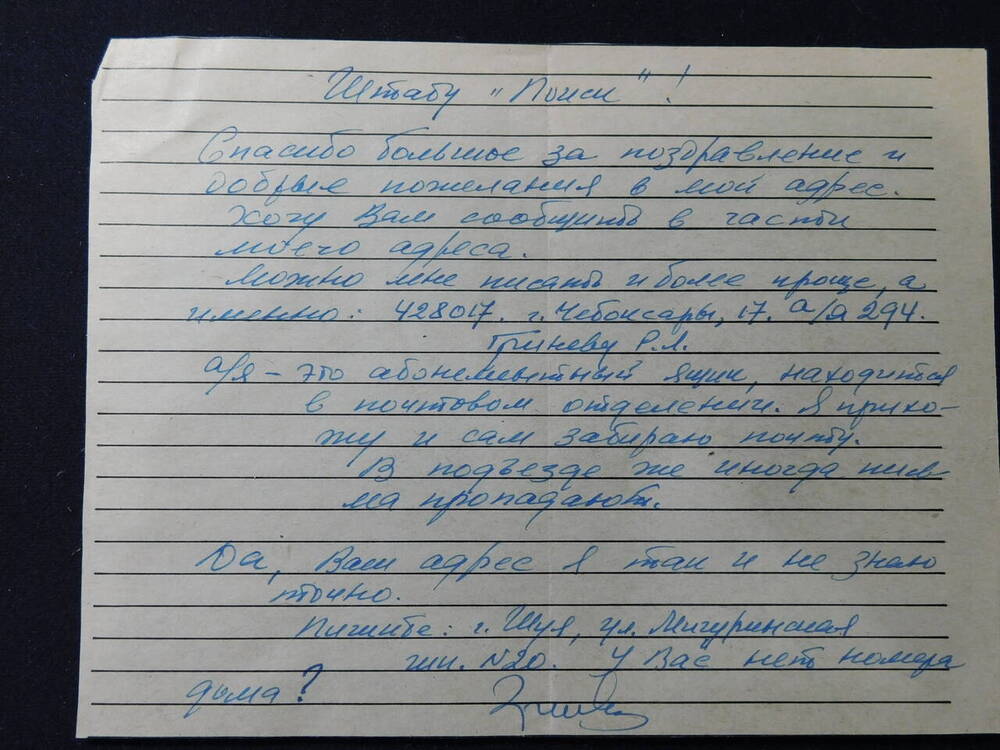 Штабу „Поиск"!
Спасибо большое за поздравление и
добрые пожелания в мой адрес.
Хочу Вам сообщить в части
моего адреса.
Можно мне писать и более проще, а
именно: 428017. г. Чебоксары, 17. а/я 294.
Гриневу Р.Л.
а/я – это абонементный ящик, находится
в почтовом отделении. Я прихо-
жу и сам забираю почту.
В подъезде же иногда пись-
ма пропадают.
Да, Ваш адрес я так и не знаю
точно.
Пишите: г. Шуя, ул. Мичуринская
шк. N20. У Вас нет номера
дома?